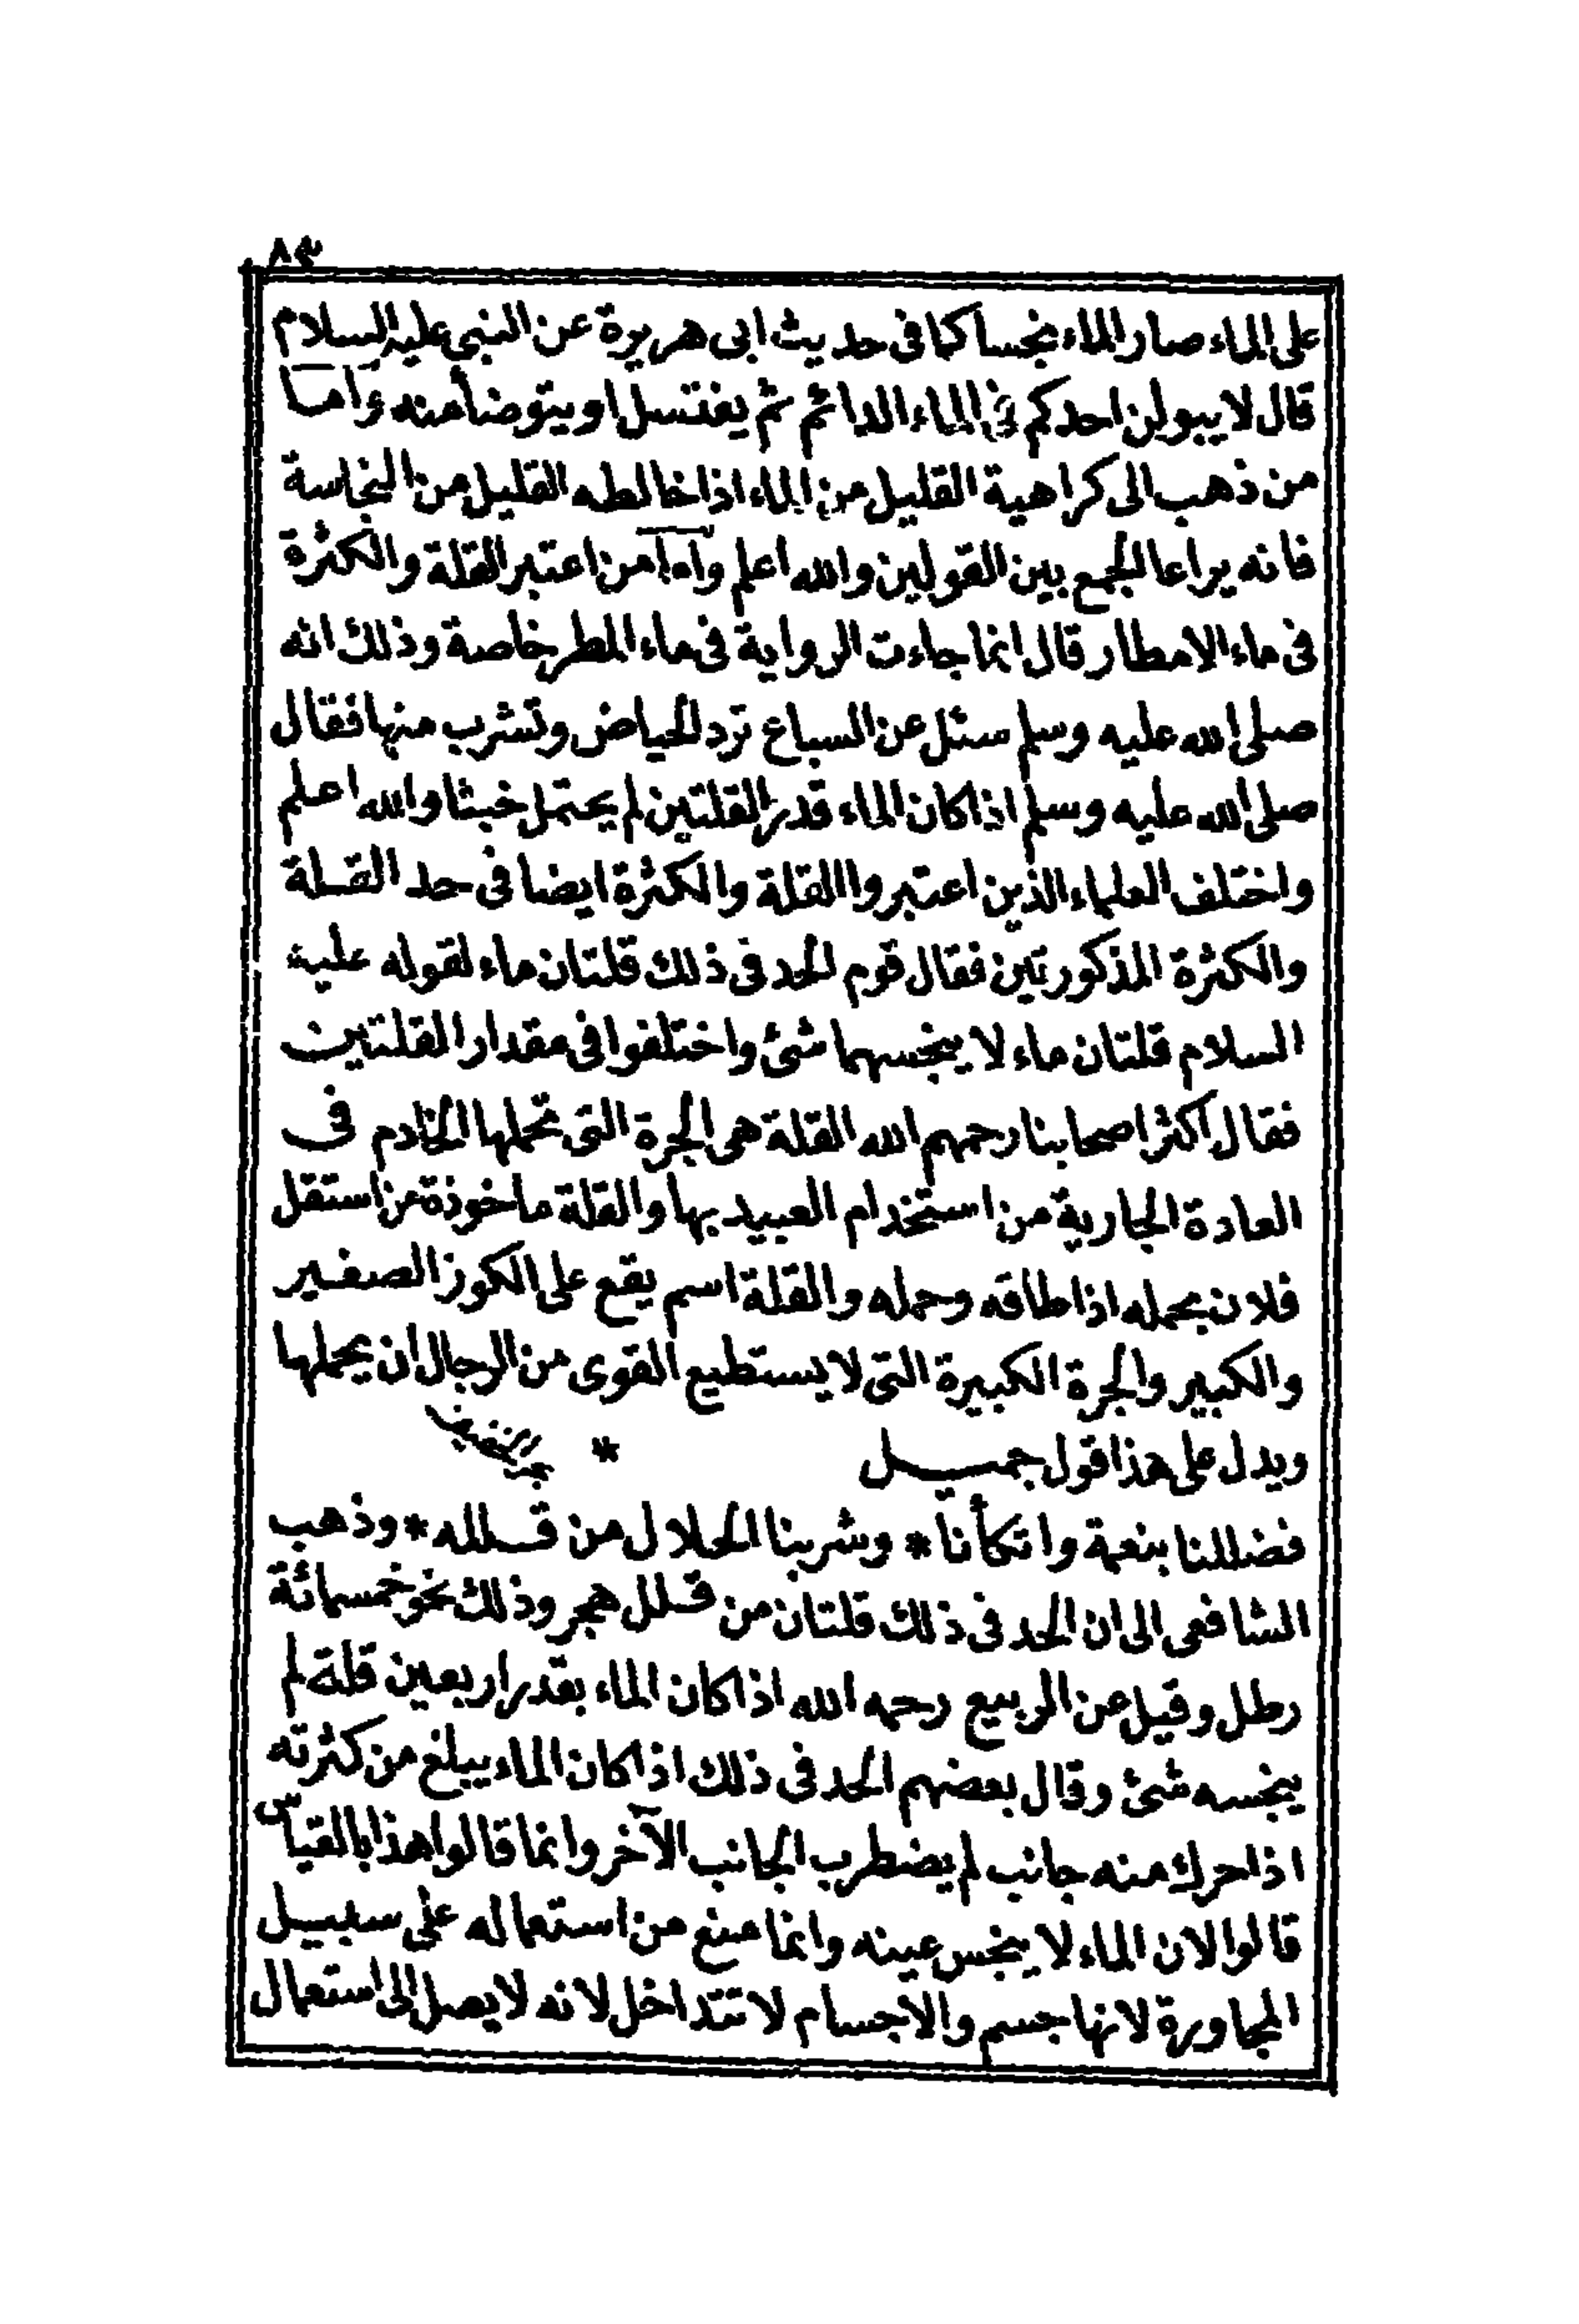 ٨٣
على الماء صار الماء نجسا كما فى حديث ابى هريرة عن النبي عليه السلام
قال لا يبولن احدكم في الماء الدائم ثم يغتسل او يتوضأ منه وأما
من ذهب الى كراهية القليل من الماء اذا خالطه القليل من النجاسة
فانه يراعا الجمع بين القولين والله اعلم وأما من اعتبر القلة والكثرة
فى ماء الامطار قال انما جاءت الرواية فى ماء المطر خاصة وذلك انه
صلى الله عليه وسلم سئل عن السباع ترد الحياض وتشرب منها فقال
صلى الله عليه وسلم اذا كان الماء قدر القلتين لم يحتمل خبثا والله اعلم
واختلف العلماء الذين اعتبروا القلة والكثرة ايضا فى حد القلة
والكثرة المذكورتين فقال قوم الحد فى ذلك قلتان ماء لقوله عليه
السلام قلتان ماء لا ينجسهما شئ واختلفوا فى مقدار القلتين
فقال اكثر اصحابنا رحمهم الله القلة هى الجرة التى تحملها الخادم فى
العادة الجارية من استخدام العبيد بها والقلة ماخوذة من استقل
فلان بحمله اذا طاقه وحمله والقلة اسم يقع على الكوز الصغير
والكبير والجرة الكبيرة التى لا يستطيع القوى من الرجال ان يحملها
ويدل على هذا قول جميل *
فضللنا بنعمة واتكأنا * وشربنا الحلال من قلله * وذهب
الشافعى الى ان الحد فى ذلك قلتان من قلل هجر وذلك نحو خمسمائة
رطل وقيل عن الربيع رحمه الله اذا كان الماء بقدر اربعين قلة لم
ينجسه شئ وقال بعضهم الحد فى ذلك اذا كان الماء يبلغ من كثرته
اذا حرك منه جانب لم يضطرب الجانب الآخر وانما قالوا هذا بالقياس
قالوا الان الماء لا ينجس عينه وانما منع من استعماله على سبيل
المجاورة لانها جسم والاجسام لا تتداخل لانه لا يصل الى استعمال